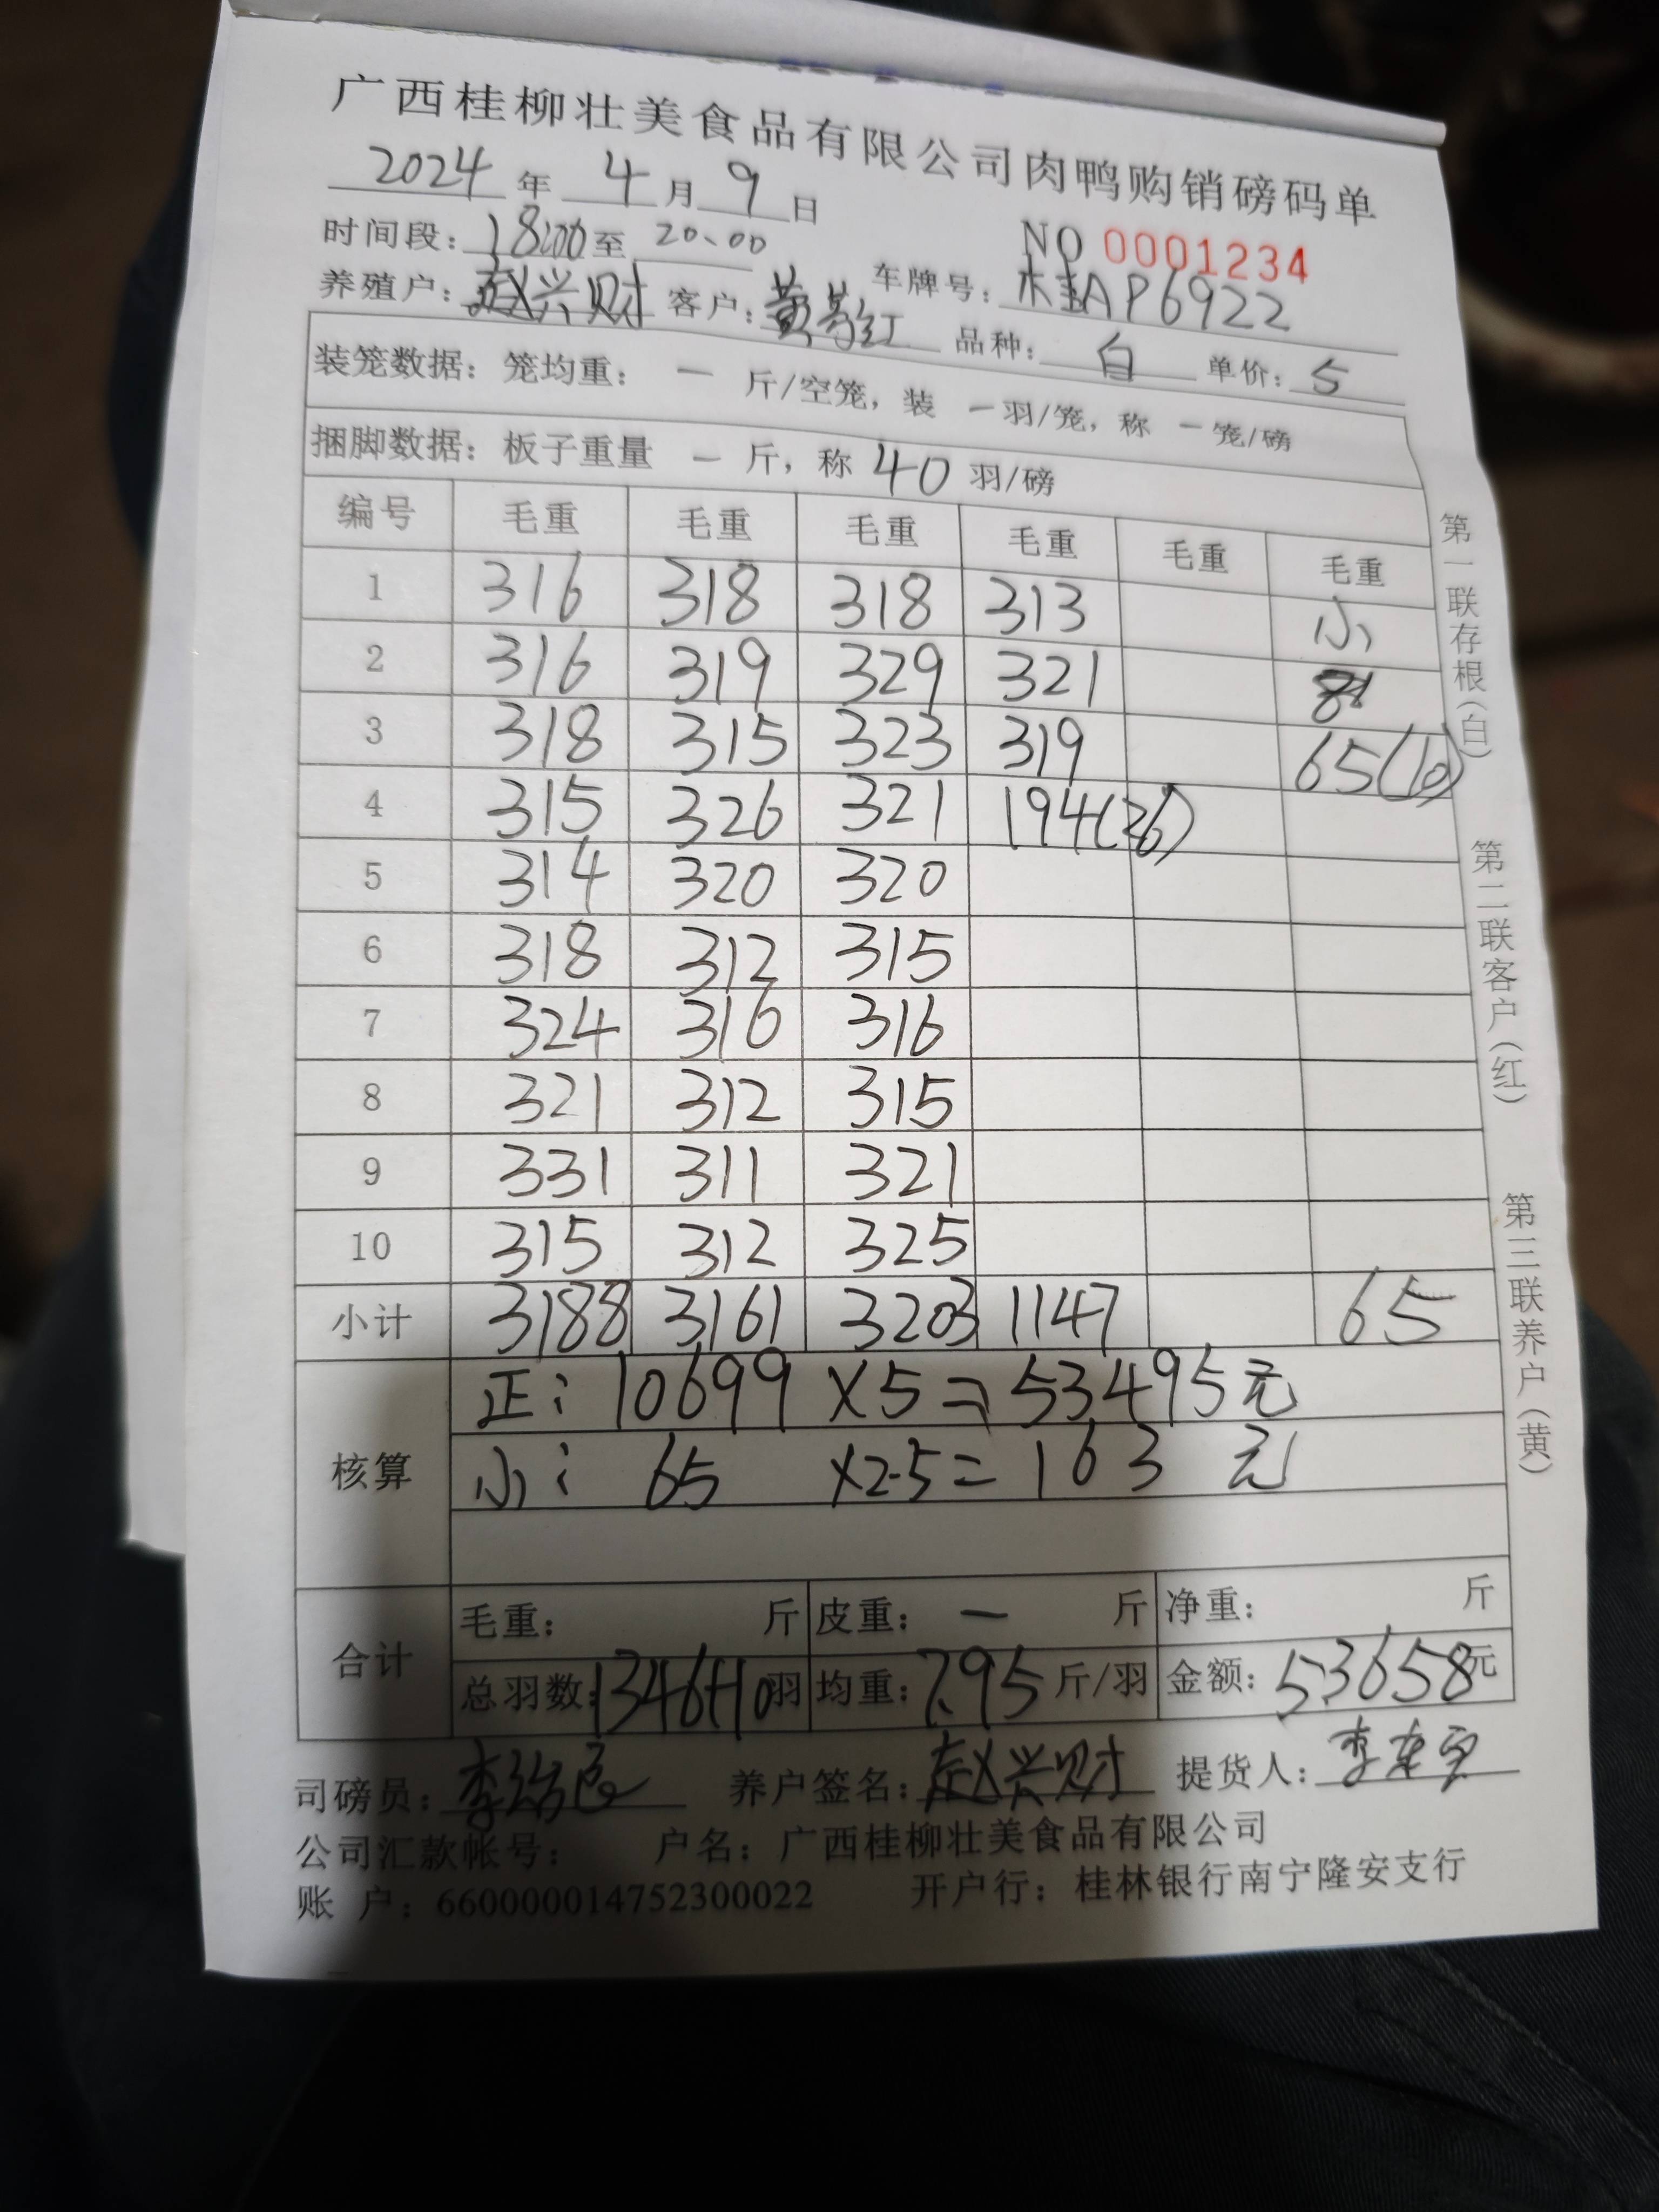 广西桂柳壮美食品有限公司肉鸭购销磅码单
2024 年 4 月 9 日
NO 0001234
时间段: 18:00 至 20:00
车牌号: 桂AP6922
养殖户: 赵兴财 客户: 黄 红 品种: 白 单价: 5
装笼数据: 笼均重: 一 斤/空笼, 装 一 羽/笼, 称 一 笼/磅
捆脚数据: 板子重量 一 斤, 称 40 羽/磅
编号 毛重 毛重 毛重 毛重 毛重 毛重
1 316 318 318 313 小
2 316 319 329 321
3 318 315 323 319 65(10)
4 315 326 321 194(26)
5 314 320 320
6 318 312 315
7 324 316 316
8 321 312 315
9 331 311 321
10 315 312 325
小计 3188 3161 3203 1147 65
核算
正: 10699 ×5= 53495元
小: 65 ×2.5= 163 元
合计
毛重: 斤 皮重: 一 斤 净重: 斤
总羽数: 1346+10羽 均重: 7.95 斤/羽 金额: 53658元
司磅员: 李 养户签名: 赵兴财 提货人: 李
公司汇款帐号: 户名: 广西桂柳壮美食品有限公司
账 户: 660000014752300022 开户行: 桂林银行南宁隆安支行
第一联存根(白)
第二联客户(红)
第三联养户(黄)